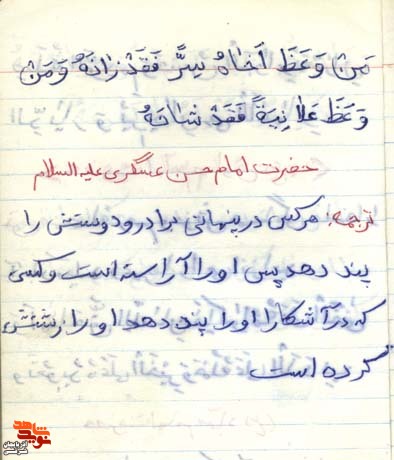 مَنْ وَعَظَ اَخاهُ سِرًّ فَقَدْ زانَهُ وَمَنْ
وَعَظَ عَلانِيَةً فَقَدْ شانَهُ
حضرت امام حسن عسگری علیه السلام
ترجمه: هرکس در پنهانی برادر و دوستش را
پند دهد پس او را آراسته است و کسی
که در آشکارا او را پند دهد او را زشتش
کرده است
نوید شاهد